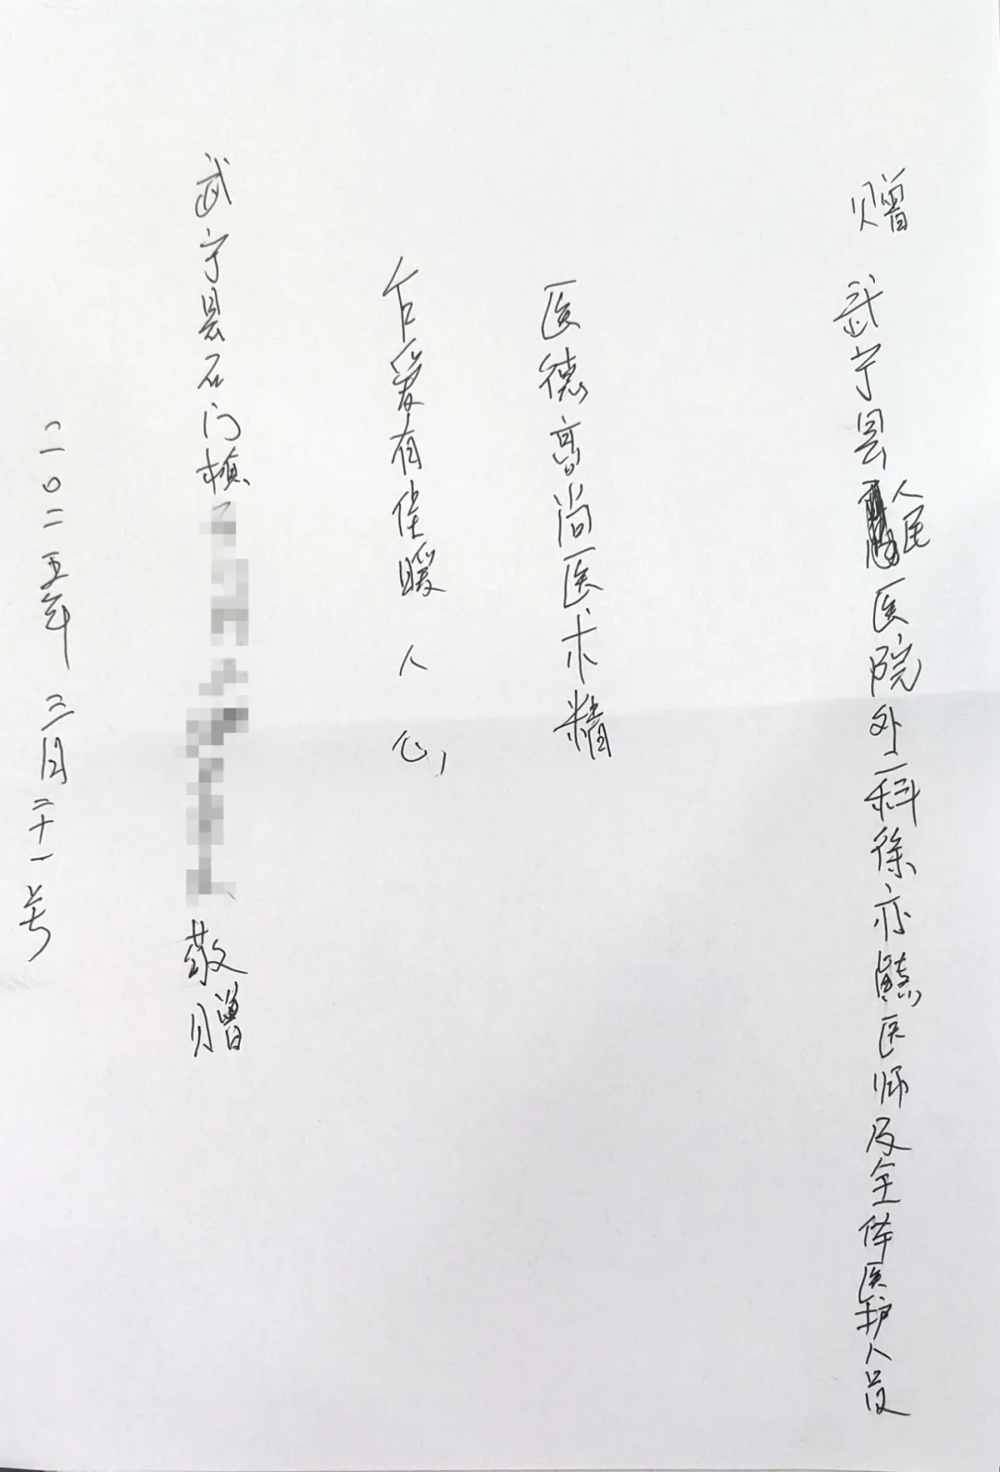 赠 武宁县人民医院外二科徐亦熊医师及全体医护人员
医德高尚医术精
仁爱有佳暖人心
武宁县石门楼 敬赠
二〇二五年三月二十一号